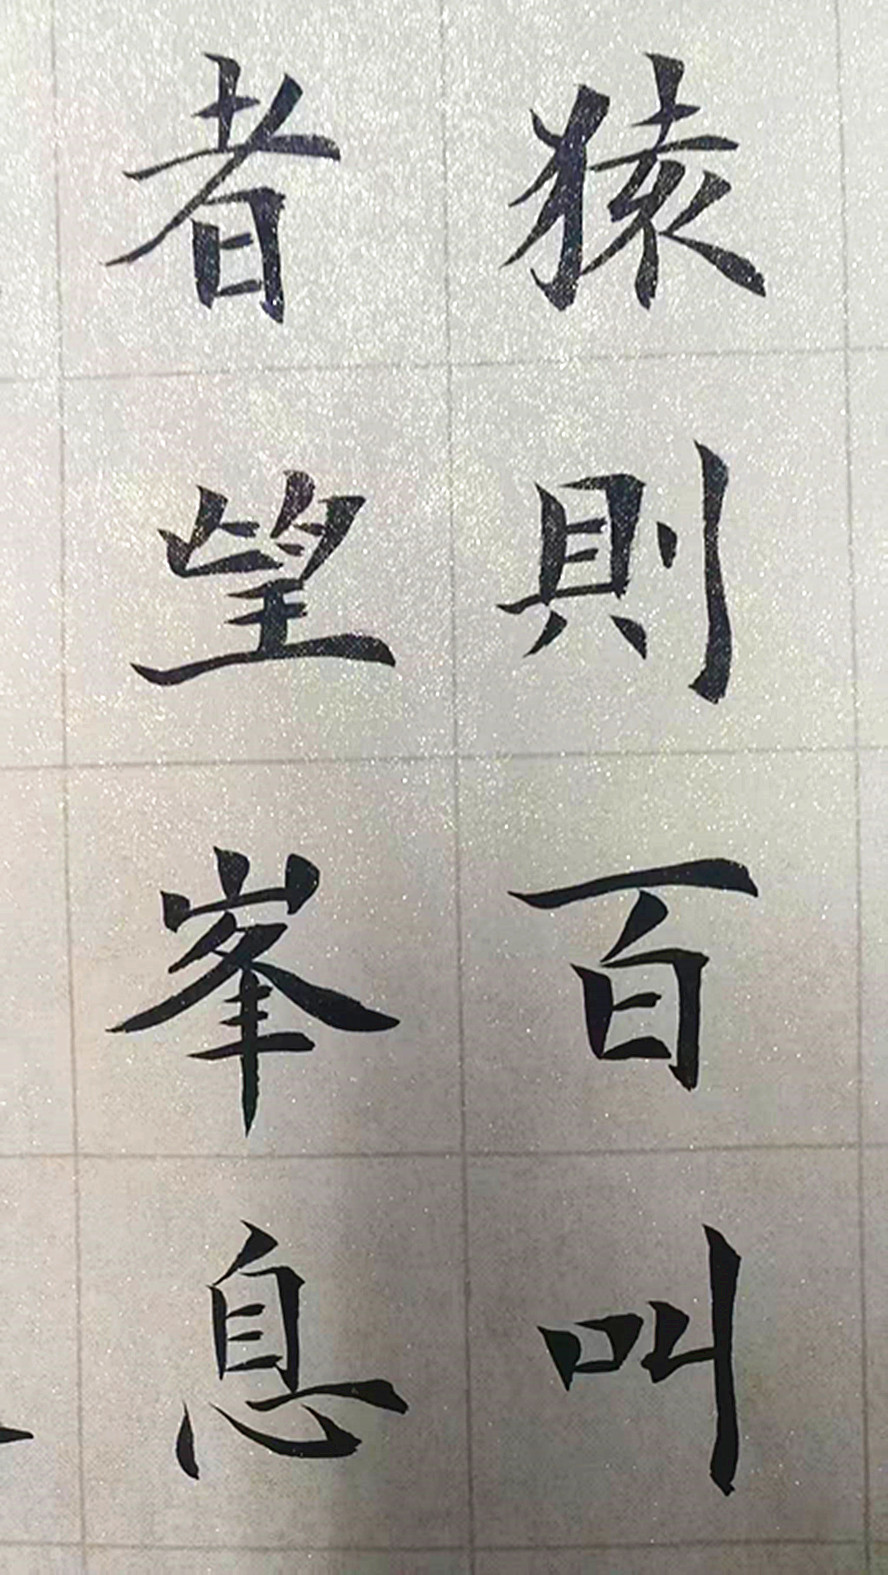 猿則百叫
者望峯息